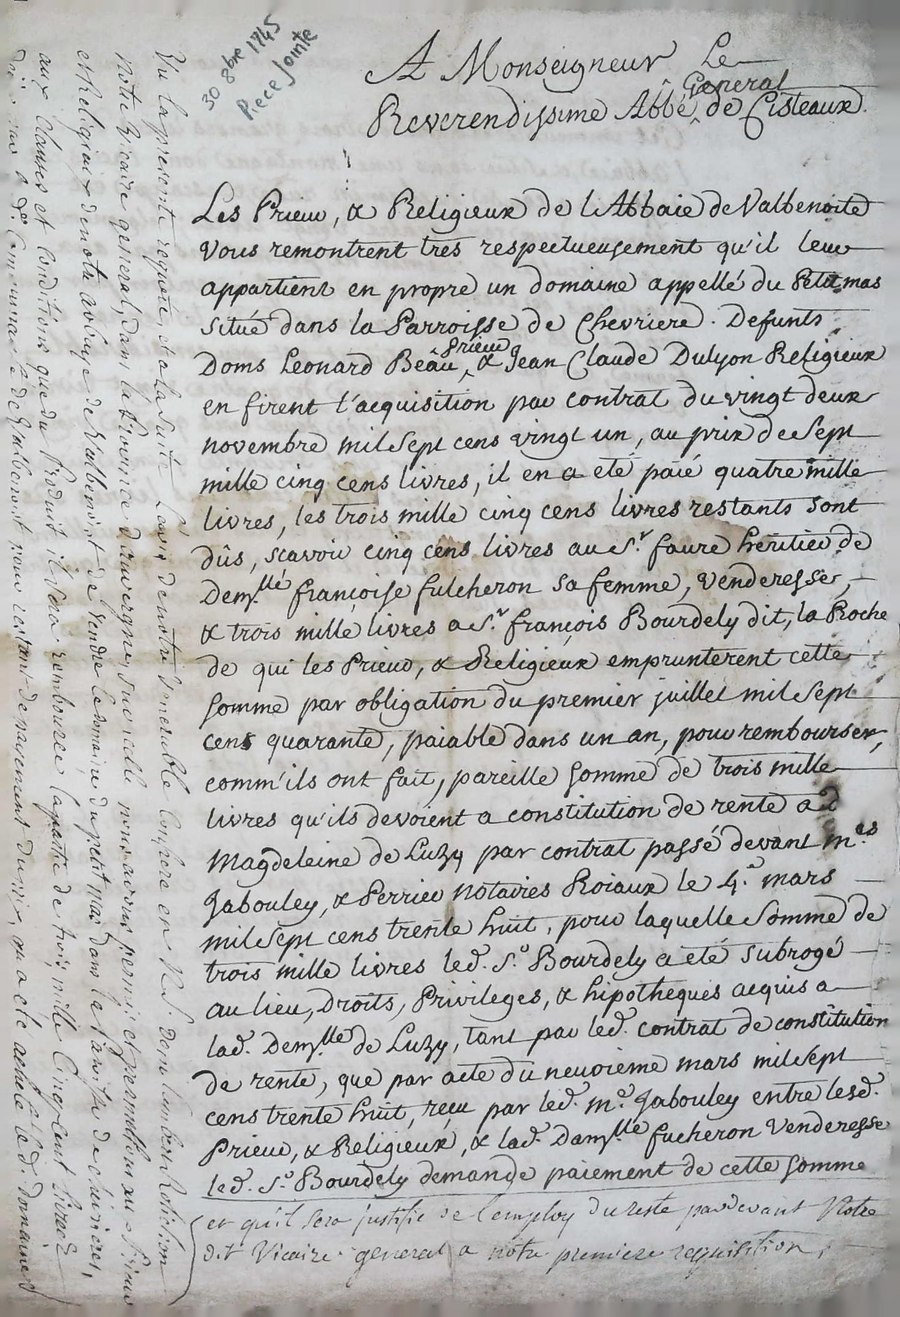 30 8bre 1745
Piece Jointe
A Monseigneur Le
General
Reverendissime Abbé de Cisteaux.
Les Prieur, & Religieux de l'Abbaie de Valbenoite
Vous remontrent tres respectueusement qu'il leur
appartient en propre un domaine appellé du Petit mas
situé dans la Parroisse de Chevriere. Defunts
Prieur
Doms Leonard Beau, & Jean Claude Dulyon Religieux
en firent l'acquisition par contrat du vingt deux
novembre mil sept cens vingt un, au prix de sept
mille cinq cens livres, il en a eté paié quatre mille
livres, les trois mille cinq cens livres restants sont
dûs, scavoir cinq cens livres au Sr. faure heritier de
Demlle françoise fulcheron sa femme, Venderesse,
& trois mille livres a Sr. françois Bourdely dit, la Roche
de qui les Prieur, & Religieux emprunterent cette
somme par obligation du premier juillet mil sept
cens quarante, paiable dans un an, pour rembourser,
comm'ils ont fait, pareille somme de trois mille
livres qu'ils devoient a constitution de rente a d
Magdeleine de Luzy par contrat passé devant mes
Jabouley, & Perrier notaires Roiaux le 4e mars
mil sept cens trente huit, pour laquelle somme de
trois mille livres led. Sr. Bourdely a eté subrogé
au lieu, Droits, Privileges, & hipotheques acquis a
lad. Demlle de Luzy, tant par led. contrat de constitution
de rente, que par acte du neuvieme mars mil sept
cens trente huit, reçu par led. me. Jabouley entre lesd.
Prieur, & Religieux, & lad. Damlle fucheron Venderesse
led. Sr. Bourdely demande paiement de cette somme
et qu'il sera justifié de l'employ du reste pardevant Notre
dit Vicaire general a nôtre premiere requisition;
Vu la presente requete, et a la suite l'avis de notre Venerable Confrere en
notre Vicaire general, dans la Province d'auvergne, sur icelle nous avons permis et permettons aux Prieur
et Religieux de notre abbaye de Valbenoist de Vendre le domaine du petit mas dans la Paroisse de chevrieres,
aux clauses et conditions que du Produit il sera remboursé la partie de trois mille Cinq cent livres
pour restant de payement du prix, on a eté acheté led. domaine